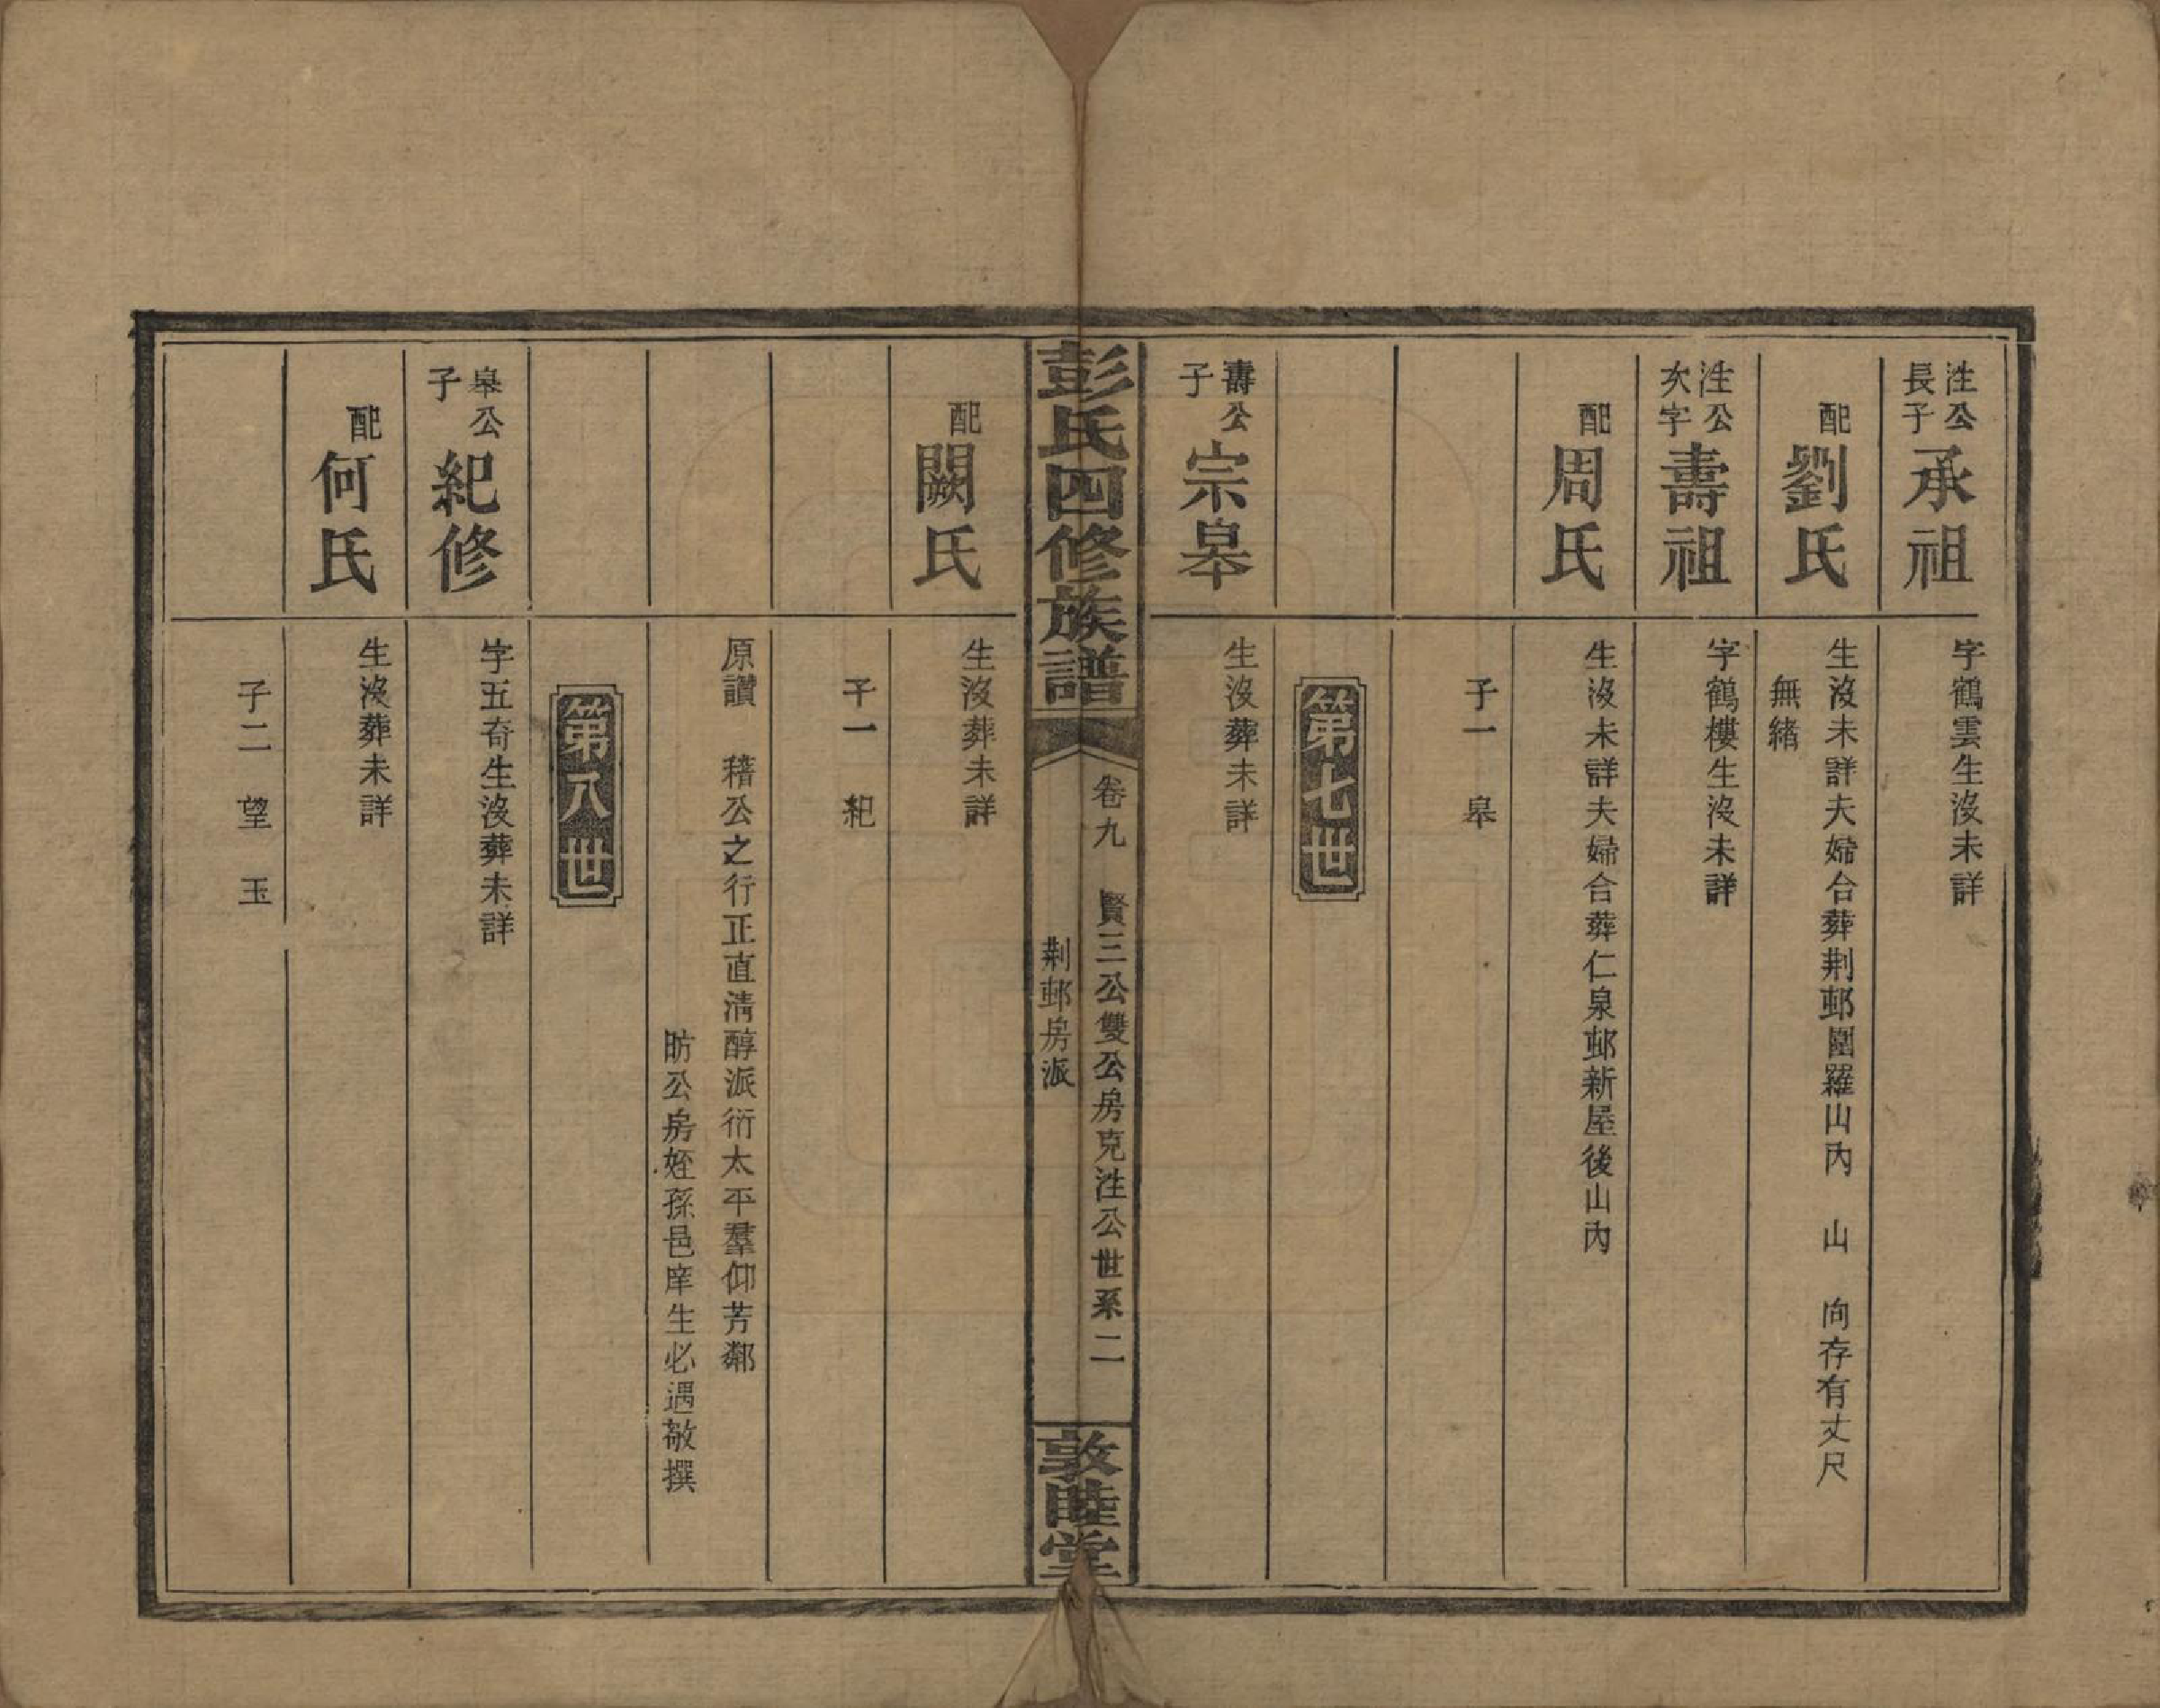 泩公長子 承祖 字鶴雲生沒未詳
配 劉氏 生沒未詳夫婦合葬荆邨圍羅山內 山 向存有丈尺
無緒
泩公次字 壽祖 字鶴樓生沒未詳
配 周氏 生沒未詳夫婦合葬仁泉邨新屋後山內
子一 皋
第七世
壽公子 宗皋 生沒葬未詳
彭氏四修族譜
卷九 賢三公雙公房克泩公世系二
荆邨房派
敦睦堂
配 闕氏 生沒葬未詳
子一 紀
原讚 稽公之行正直清醇派衍太平羣仰芳鄰
昉公房姪孫邑庠生必遇敬撰
第八世
皋公子 紀修 字五奇生沒葬未詳
配 何氏 生沒葬未詳
子二 望 玉